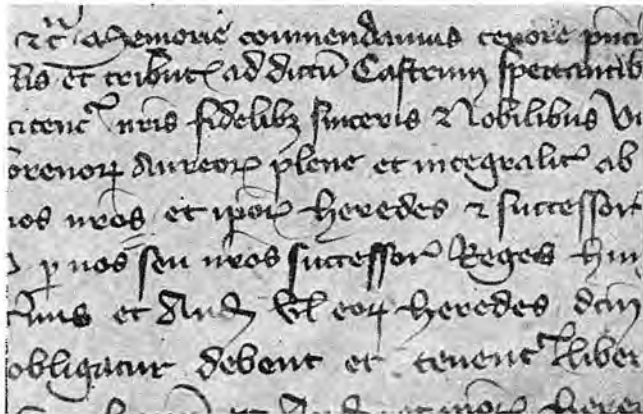 etc̄ Memorie commendamus tenore pn̄ci
lis et tributꝭ ad dictū Castrum spectantib
citenc̄ nr̄is fidelibꝫ sinceris et Nobilibus Vi
orenoꝝ Aureoꝝ plene et integralit̄ ab
nos nr̄os et ip̄oꝝ heredes et successor
ꝑ nos seu nr̄os successoꝝ Reges hun
et And Vl eoꝝ heredes dc̄m
obligatur debent et tenent̄ liber